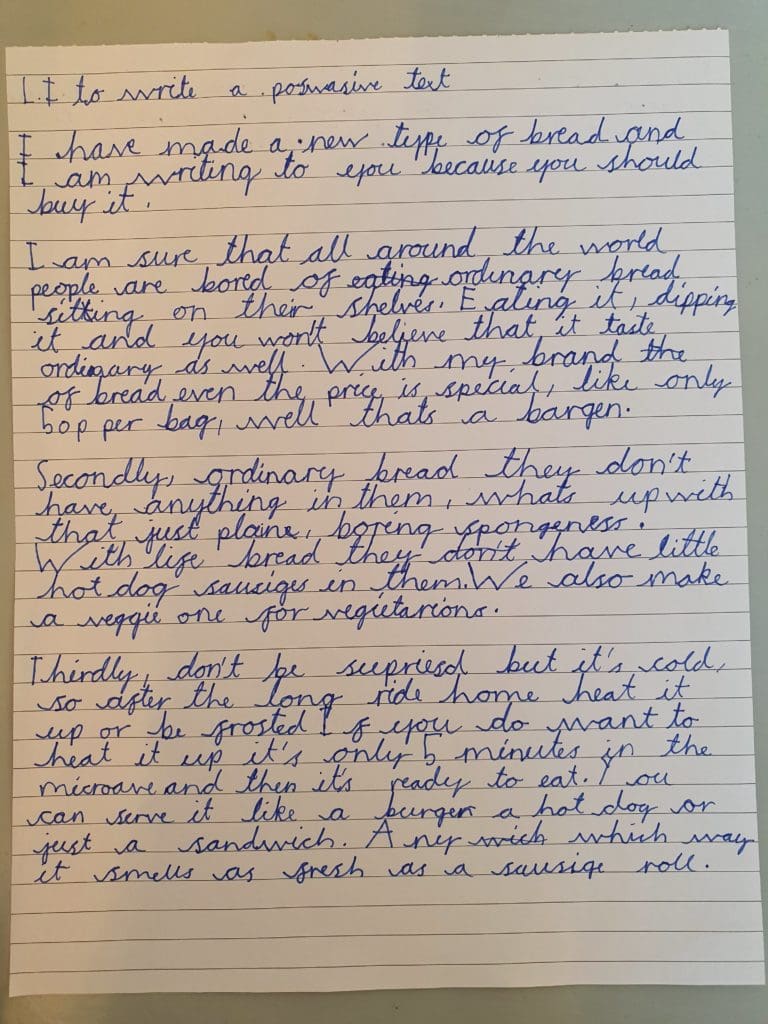 L.I to write a poswasive text
I have made a new type of bread and
I am writing to you because you should
buy it.
I am sure that all around the world
people are bored of eating ordinary bread
sitting on their shelves. Eating it, dipping
it and you won't believe that it taste
ordinary as well. With my brand the
of bread even the price is special, like only
50p per bag, well thats a bargen.
Secondly, ordinary bread they don't
have anything in them, whats up with
that just plane, boring spongeness.
With life bread they don't have little
hot dog sausiges in them. We also make
a veggie one for vegietarions.
Thirdly, don't be supriesd but it's cold,
so after the long ride home heat it
up or be frosted! If you do want to
heat it up it's only 5 minutes in the
microave and then it's ready to eat. You
can serve it like a burger a hot dog or
just a sandwich. A ny wich which way
it smells as fresh as a sausige roll.